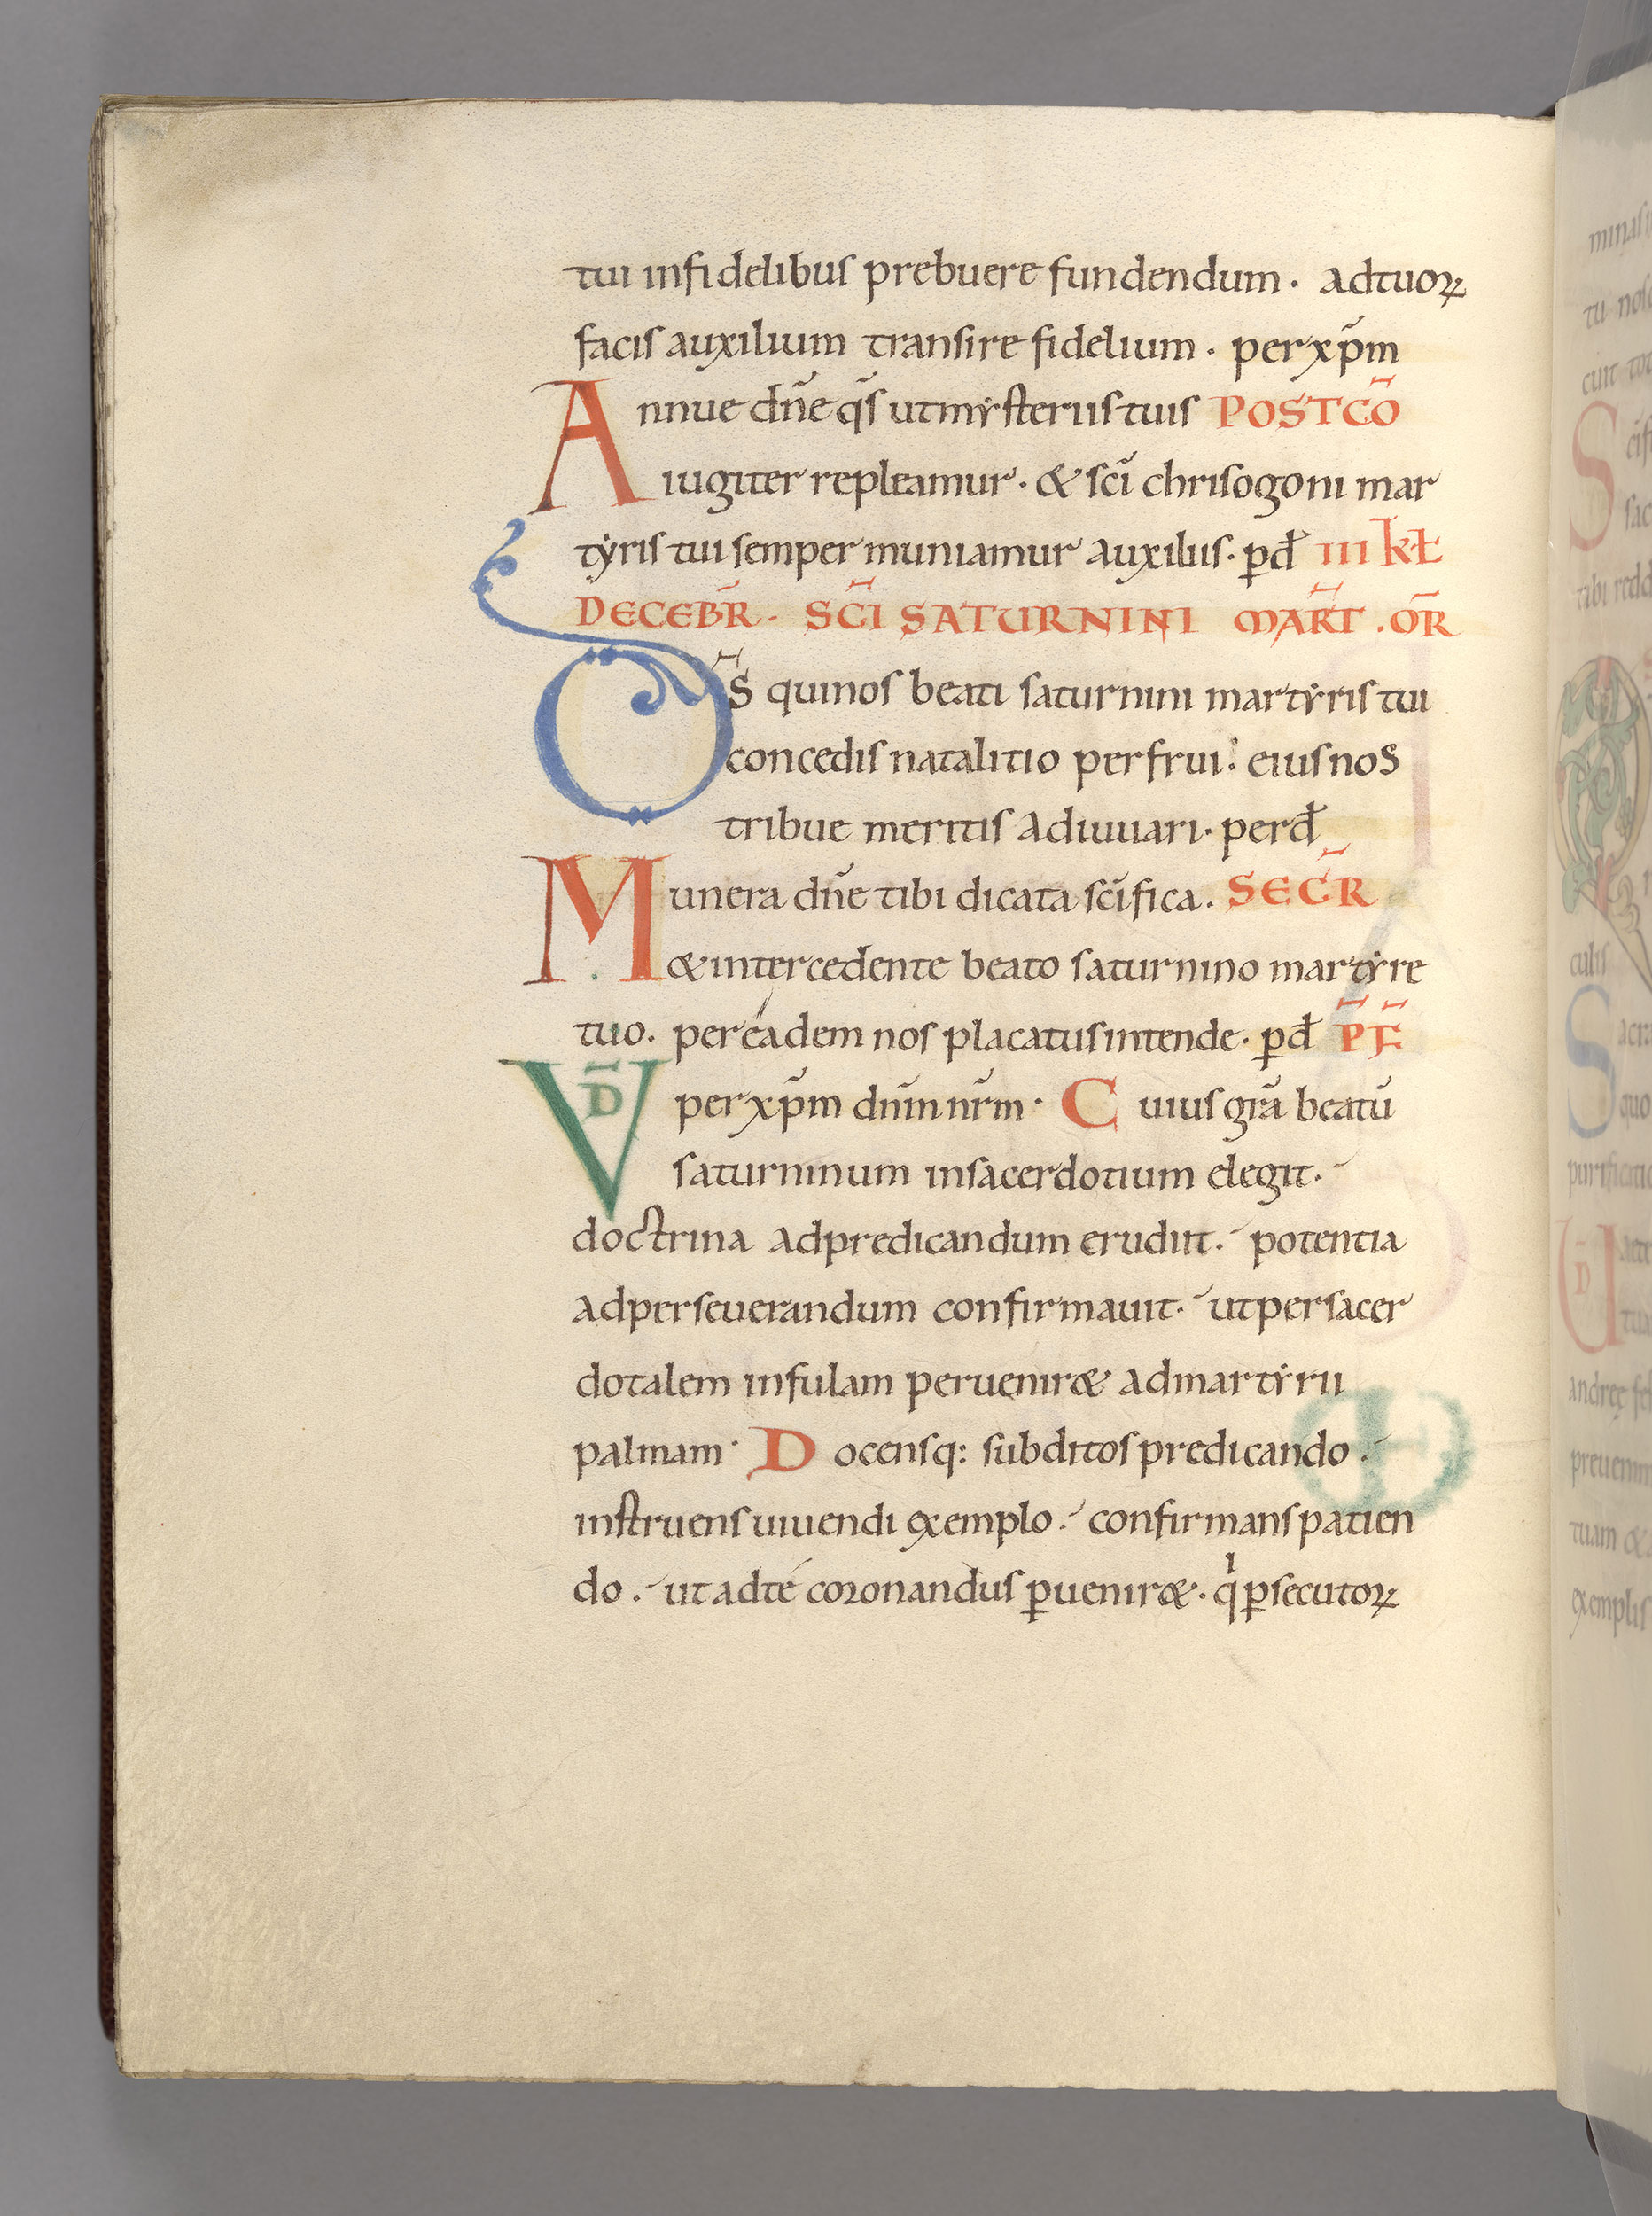 tui infidelibus prebuere fundendum. adtuoꝝ
facis auxilium transire fidelium. per xp̄m
Annue dn̄e qs̄ ut mẏsteriis tuis POSTCŌ
iugiter repleamur. & sc̄i chrisogoni mar
tẏris tui semper muniamur auxiliis. ꝑ đ III kł
DECEBR̄. SC̄I SATURNINI MAR̄T. OR̄
D̄S qui nos beati saturnini martẏris tui
concedis natalitio perfrui: eius nos
tribue meritis adiuuari. per đ
Munera dn̄e tibi dicata sc̄ifica. SEC̄R
& intercedente beato saturnino martẏre
tuo. per eadem nos placatus intende. ꝑ đ P̄F̄
VD̄ per xp̄m dn̄m nr̄m. Cuius gr̄a beatū
saturninum in sacerdotium elegit.
doctrina ad predicandum erudiit. potentia
ad perseuerandum confirmauit. ut per sacer
dotalem infulam peruenir& ad martẏrii
palmam. Docensq: subditos predicando.
instruens uiuendi exemplo. confirmans patien
do. ut ad té coronandus ꝑuenir&. qͥ ꝑsecutoꝝ